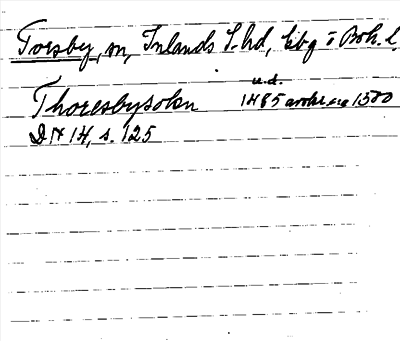 Torsby, sn, Inlands S. hd, Gbg o Boh. l.
Thoresbysokn u.d. 1485 avskr. ca 1500
DN 14, s. 125